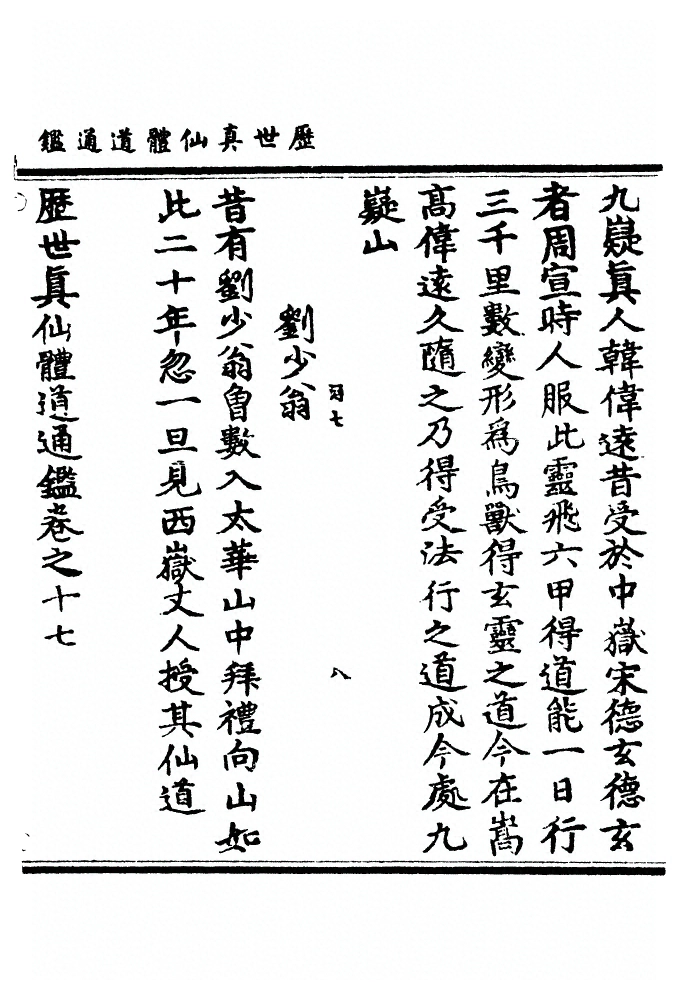 歷世真仙體道通鑑
九嶷眞人韓偉遠昔受於中嶽宋德玄德玄
者周宣時人服此靈飛六甲得道能一日行
三千里數變形爲鳥獸得玄靈之道今在嵩
高偉遠久隨之乃得受法行之道成今處九
嶷山
羽七
八
劉少翁
昔有劉少翁曾數入太華山中拜禮向山如
此二十年忽一旦見西嶽丈人授其仙道
歷世眞仙體道通鑑卷之十七